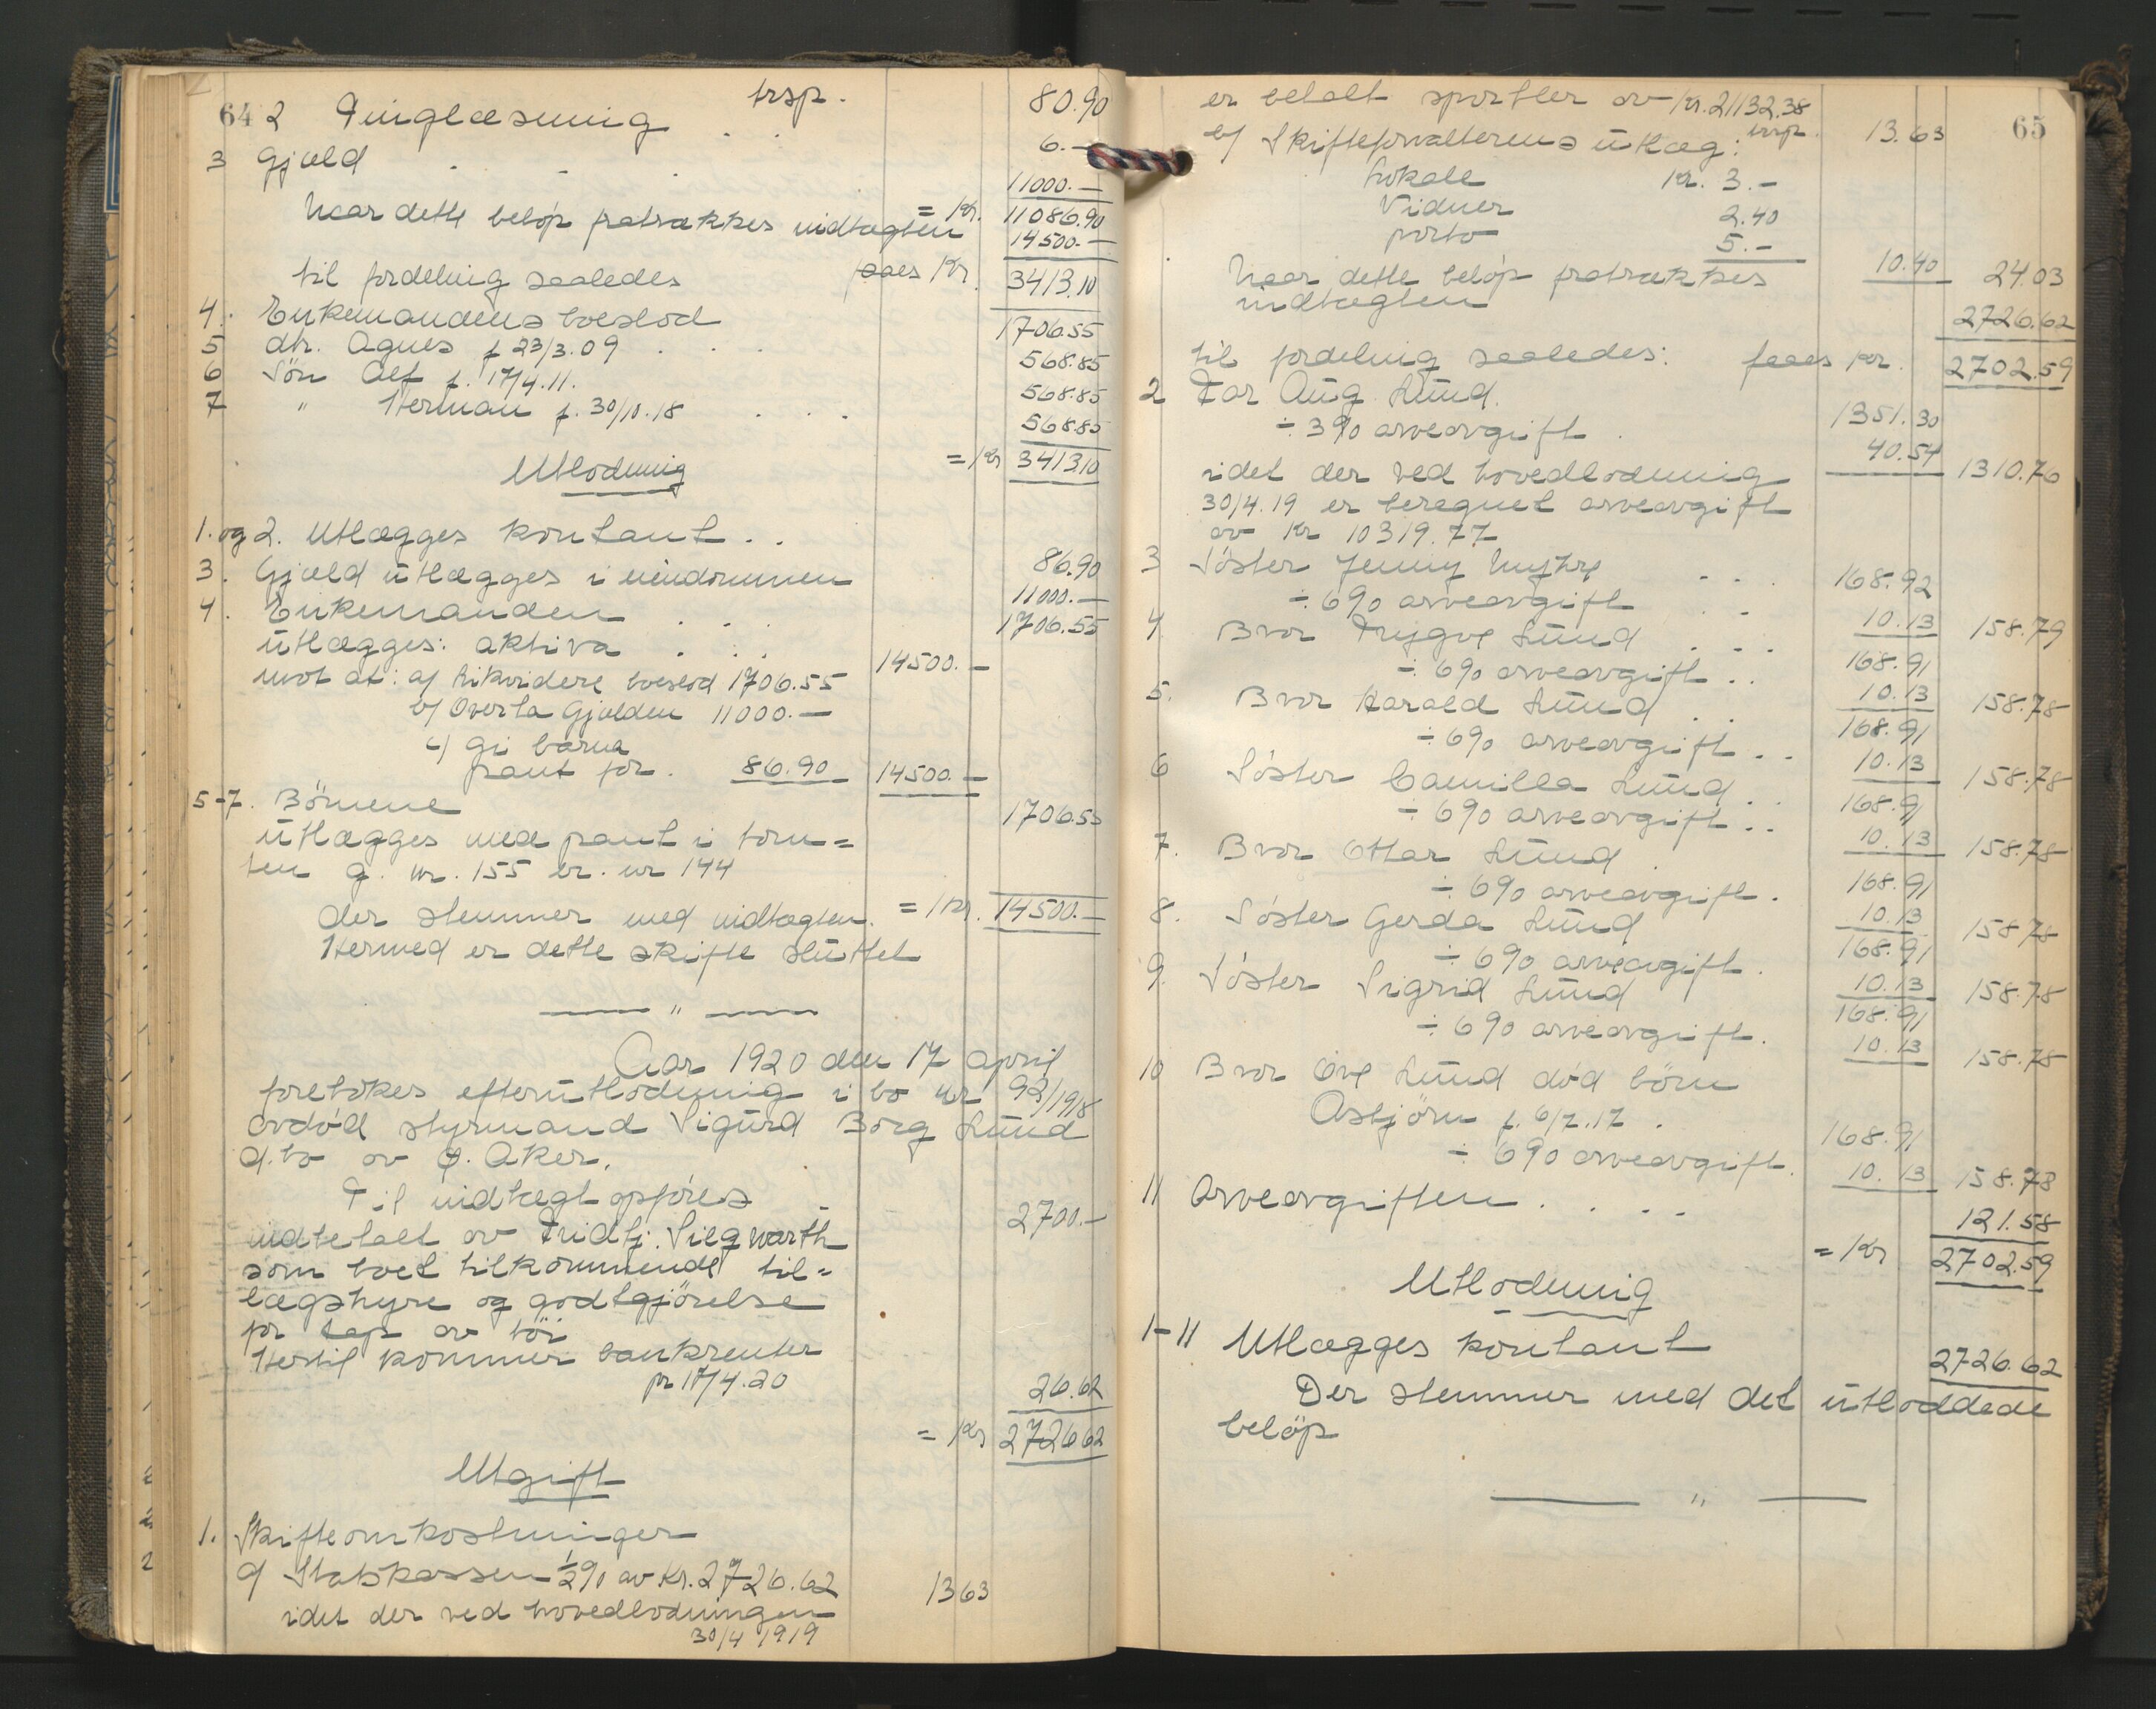 64
trsp. 80.90
2 Tinglæsning . . 6.-
3 Gjæld . . . 11000.-
= Kr. 11086.90
Naar dette beløp fratrækkes indtægten 14500.-
faaes Kr. 3413.10
til fordeling saaledes
4. Enkemandens boeslod 1706.55
5 dtr. Agnes f 23/3.09 . . . 568.85
6 Søn Alf f. 17/4.11. 568.85
7 " Herman f. 30/10.18 . . . 568.85
= Kr 3413.10
Utlodning
1. og 2. Utlægges kontant . . 86.90
3. Gjæld utlægges i eiendommen 11000.-
4. Enkemanden . . . 1706.55
utlægges: aktiva . . . 14500.-
mot at: a/ likvidere boeslod 1706.55
b/ Overta Gjælden 11000.-
c/ gi barna
pant for . 86.90 14500.-
5-7. Børnene 1706.55
utlægges med pant i tom=
ten g. nr. 155 br. nr 144
= Kr. 14500.-
der stemmer med indtægten.
Hermed er dette skifte sluttet
— " —
Aar 1920 den 17 april
foretokes efterutlodning i bo nr 93/1918
avdød styrmand Sigurd Borg Lund
d.bo av Ø. Aker.
Til indtægt opføres
indbetalt av Fridtj. Siegwarth 2700.-
som boet tilkommende til=
lægshyre og godtgjørelse
for tap av tøi
Hertil kommer bankrenter
pr 17/4.20 26.62
= Kr 2726.62
Utgift
1. Skifteomkostninger
a/ Statskassen 1/2 % av Kr. 2726.62 13 63
idet der ved hovedlodningen
30/4 1919
65
er betalt sportler av Kr. 21132.38
trsp. 13.63
b/ Skifteforvalterens utlæg:
Lokale Kr. 3.-
Vidner 2.40
porto 5.- 10.40 24.03
Naar dette beløp fratrækkes
indtægten 2726.62
faaes Kr. 2702.59
til fordeling saaledes:
2 Far Aug. Lund. 1351.30
÷ 3% arveavgift . 40.54 1310.76
idet der ved hovedlodning
30/4.19 er beregnet arveavgift
av Kr 10319.77
3 Søster Jenny Myhre . . . 168.92
÷ 6% arveavgift . . 10.13 158.79
4 Bror Trygve Lund . . . 168.91
÷ 6% arveavgift . . 10.13 158.78
5. Bror Harald Lund . . 168.91
÷ 6% arveavgift . . 10.13 158.78
6 Søster Camilla Lund . . 168.91
÷ 6% arveavgift . . 10.13 158.78
7. Bror Ottar Lund . 168.91
÷ 6% arveavgift . 10.13 158.78
8. Søster Gerda Lund 168.91
÷ 6% arveavgift . 10.13 158.78
9. Søster Sigrid Lund 168.91
÷ 6% arveavgift . 10.13 158.78
10 Bror Ove Lund død børn
Asbjørn f. 6/7.17 . 168.91
÷ 6% arveavgift . 10.13 158.78
11 Arveavgiften . . . . 121.58
= Kr 2702.59
Utlodning
1-11 Utlægges kontant 2726.62
Der stemmer med det utloddede
beløp
— " —